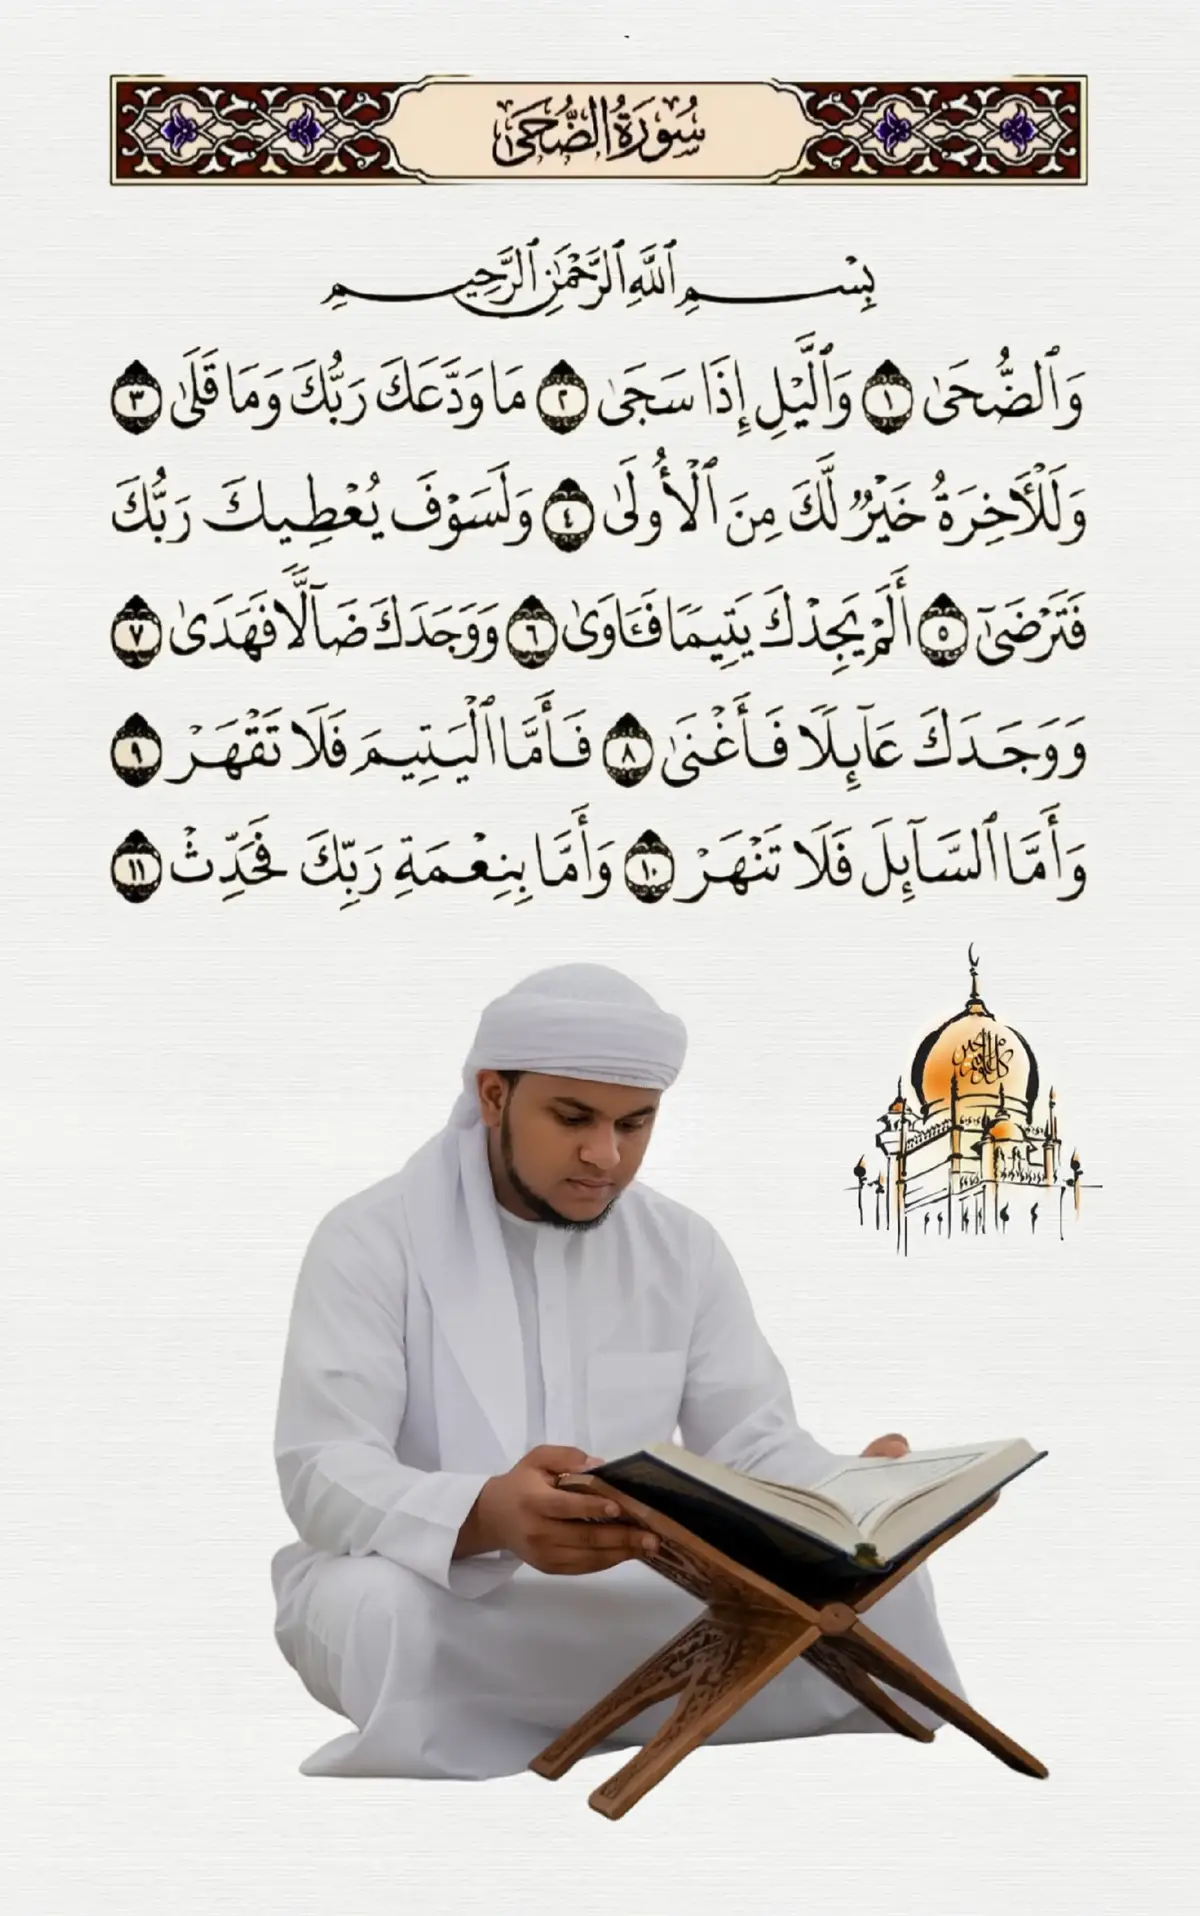 سُورَةُ الضُّحَىٰ
بِسْمِ ٱللَّهِ ٱلرَّحْمَٰنِ ٱلرَّحِيمِ
وَٱلضُّحَىٰ ١ وَٱلَّيْلِ إِذَا سَجَىٰ ٢ مَا وَدَّعَكَ رَبُّكَ وَمَا قَلَىٰ ٣
وَلَلْأَخِرَةُ خَيْرٌ لَّكَ مِنَ ٱلْأُولَىٰ ٤ وَلَسَوْفَ يُعْطِيكَ رَبُّكَ
فَتَرْضَىٰٓ ٥ أَلَمْ يَجِدْكَ يَتِيمًا فَـَٔاوَىٰ ٦ وَوَجَدَكَ ضَآلًّا فَهَدَىٰ ٧
وَوَجَدَكَ عَآئِلًا فَأَغْنَىٰ ٨ فَأَمَّا ٱلْيَتِيمَ فَلَا تَقْهَرْ ٩
وَأَمَّا ٱلسَّآئِلَ فَلَا تَنْهَرْ ١٠ وَأَمَّا بِنِعْمَةِ رَبِّكَ فَحَدِّثْ ١١